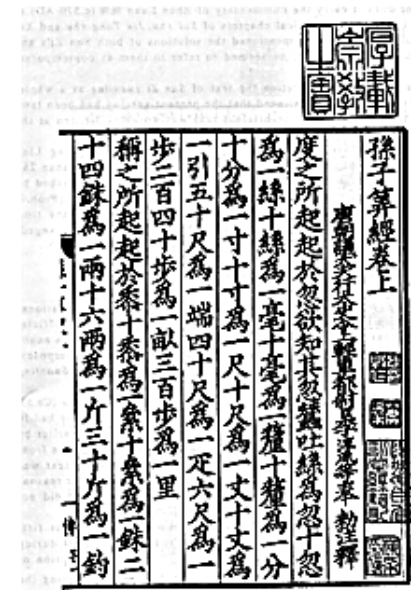 孫子算經卷上
唐朝議大夫行太史令上輕車都尉臣李淳風等奉 勑注釋
度之所起起於忽欲知其忽蠶吐絲爲忽十忽
爲一絲十絲爲一毫十毫爲一釐十釐爲一分
十分爲一寸十寸爲一尺十尺爲一丈十丈爲
一引五十尺爲一端四十尺爲一疋六尺爲一
步二百四十步爲一畝三百步爲一里
稱之所起起於黍十黍爲一絫十絫爲一銖二
十四銖爲一兩十六兩爲一斤三十斤爲一鈞